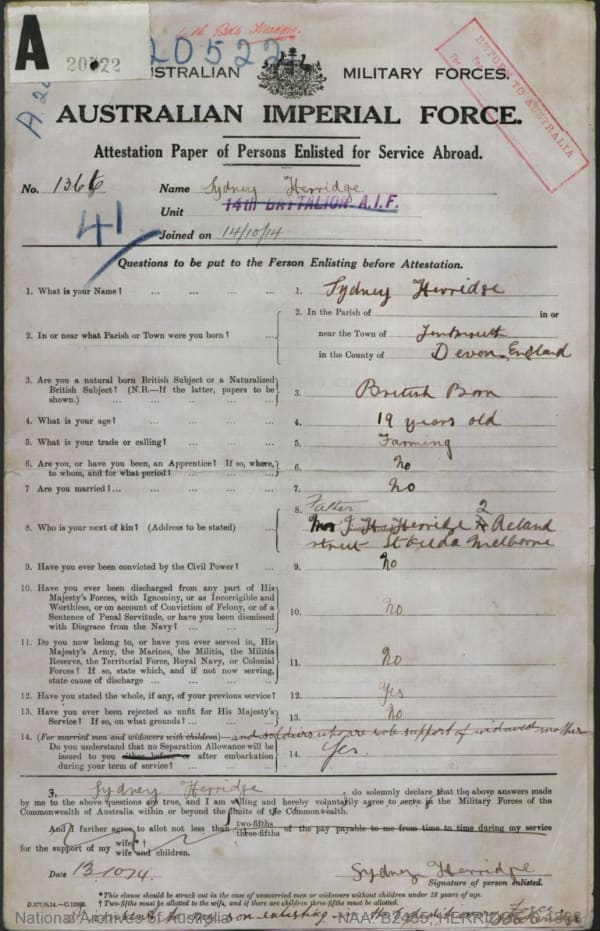 4th Bde Headqrs.
A
20522
20522
AUSTRALIAN MILITARY FORCES.
RETURN TO AUSTRALIA
AUSTRALIAN IMPERIAL FORCE.
Attestation Paper of Persons Enlisted for Service Abroad.
No. 1366 Name Sydney Herridge
Unit 14th BATTALION A.I.F.
41
Joined on 14/10/14
Questions to be put to the Person Enlisting before Attestation.
1. What is your Name? ... ... ... ... 1. Sydney Herridge
2. In the Parish of in or
2. In or near what Parish or Town were you born? ... near the Town of
in the County of Devon, England
3. Are you a natural born British Subject or a Naturalized
British Subject? (N.B.—If the latter, papers to be
shown.) ... ... ... ... ... 3. British Born
4. What is your age? ... ... ... ... 4. 19 years old
5. What is your trade or calling? ... ... ... 5. Farming
6. Are you, or have you been, an Apprentice? If so, where,
to whom, and for what period? ... ... 6. No
7 Are you married?... ... ... ... ... 7. No
8. Father
8. Who is your next of kin? (Address to be stated) ... Herridge 2 Acland
street St Kilda Melborne
9. Have you ever been convicted by the Civil Power? ... 9. No
10. Have you ever been discharged from any part of His
Majesty's Forces, with Ignominy, or as Incorrigible and
Worthless, or on account of Conviction of Felony, or of a
Sentence of Penal Servitude, or have you been dismissed
with Disgrace from the Navy? ... ... ... 10. No
11. Do you now belong to, or have you ever served in, His
Majesty's Army, the Marines, the Militia, the Militia
Reserve, the Territorial Force, Royal Navy, or Colonial
Forces? If so, state which, and if not now serving,
state cause of discharge ... ... ... ... 11. No
12. Have you stated the whole, if any, of your previous service? 12. Yes
13. Have you ever been rejected as unfit for His Majesty's
Service? If so, on what grounds? ... ... ... 13. No
14. (For married men and widowers with children)— and soldiers who are sole support of widowed mother
Do you understand that no Separation Allowance will be
issued to you either before or after embarkation
during your term of service? ... ... ... 14. Yes.
I, Sydney Herridge, do solemnly declare that the above answers made
by me to the above questions are true, and I am willing and hereby voluntarily agree to serve in the Military Forces of the
Commonwealth of Australia within or beyond the limits of the Commonwealth.
And I further agree to allot not less than two-fifths three-fifths of the pay payable to me from time to time during my service
for the support of my wife wife and children.
Date 13.10.14. Sydney Herridge
Signature of person enlisted.
*This clause should be struck out in the case of unmarried men or widowers without children under 18 years of age.
† Two-fifths must be allotted to the wife, and if there are children three-fifths must be allotted.
D.577/9.14.
to my son enlisting in the Expeditionary Force
National Archives of Australia NAA: B2455, HERRIDGE S 1366